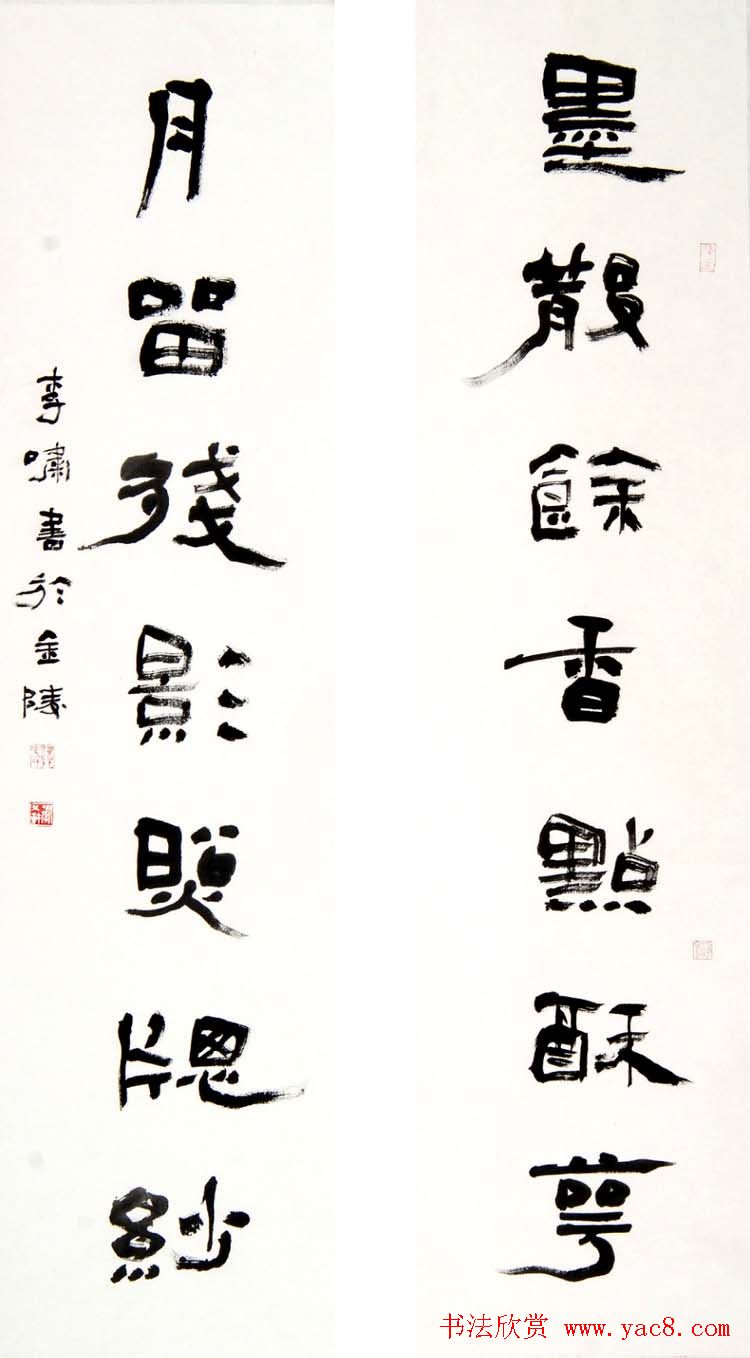 墨散餘香點酥萼
月留殘影照牕紗
李嘯書於金陵
书法欣赏 www.yac8.com